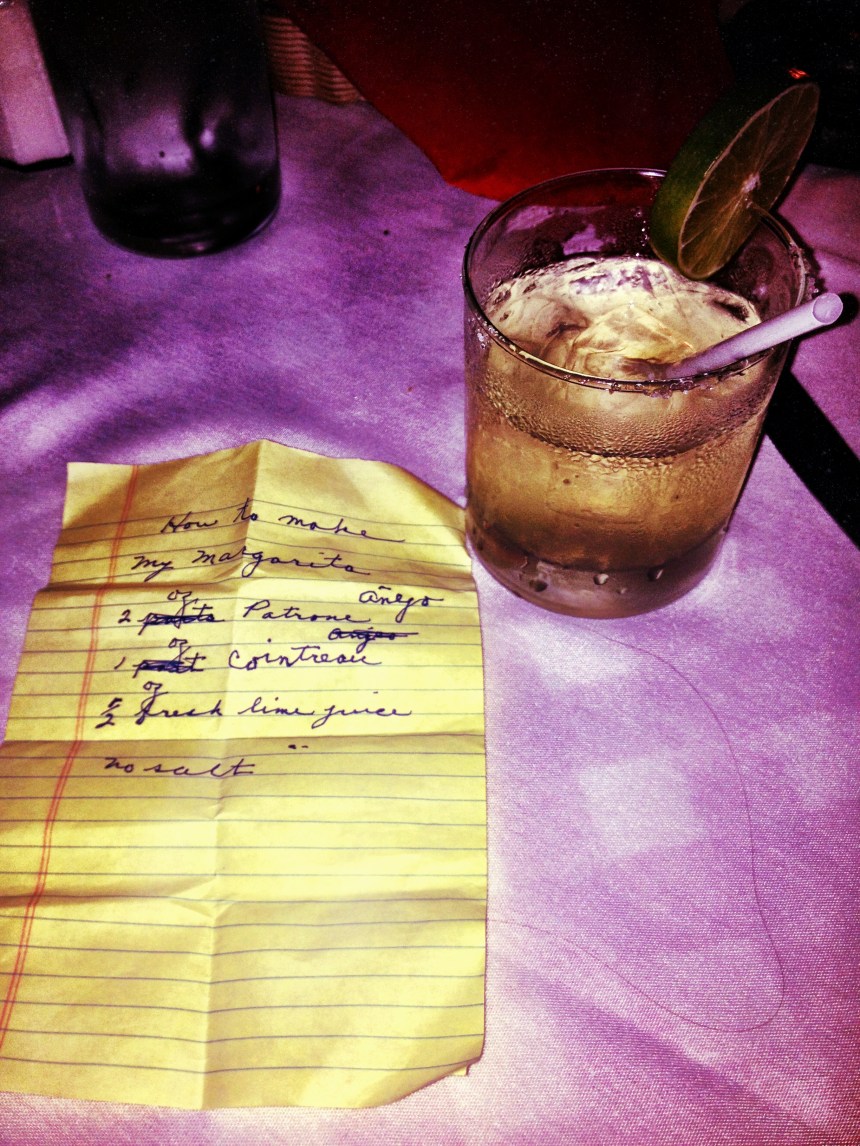 How to make
my margarita
2 oz Patrone añejo
1 oz Cointreau
oz fresh lime juice
no salt